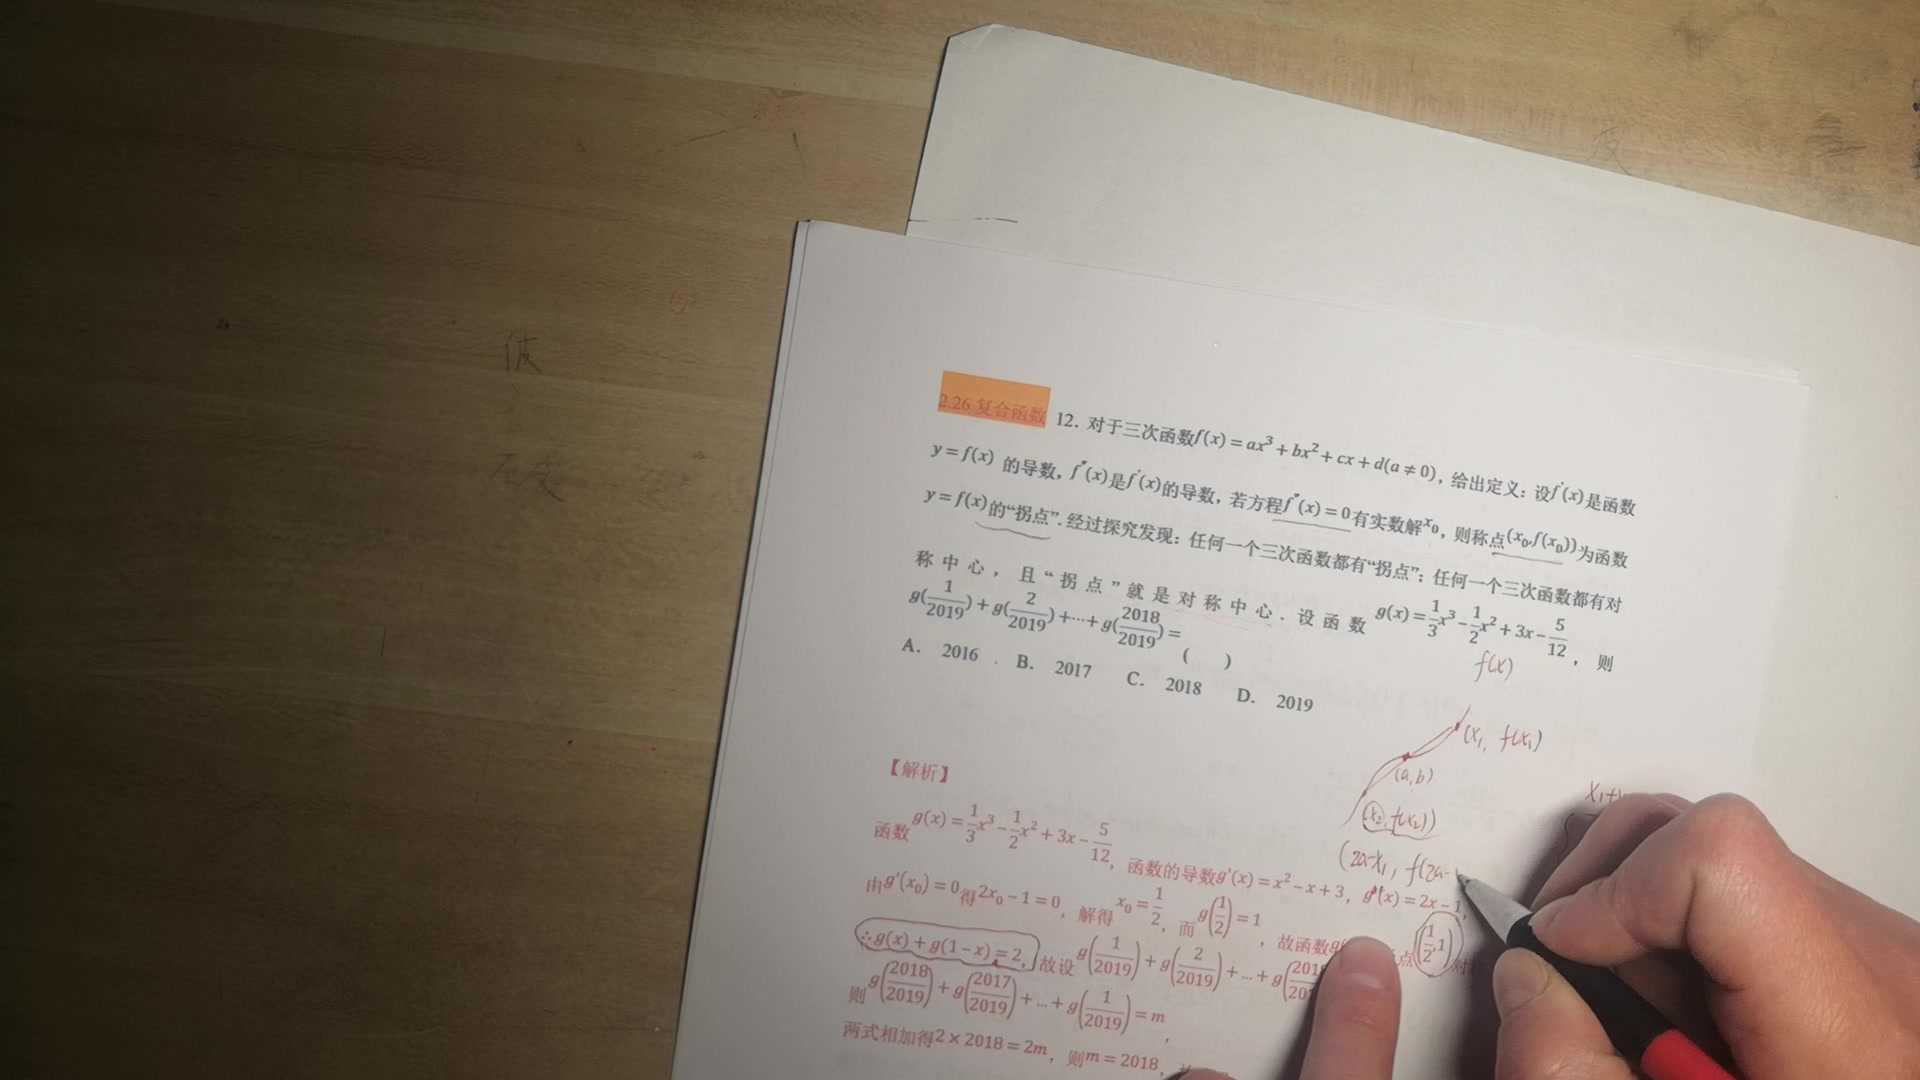 2.26 复合函数 12. 对于三次函数f(x) = ax³ + bx² + cx + d(a ≠ 0), 给出定义: 设f'(x)是函数
y = f(x) 的导数, f''(x)是f'(x)的导数, 若方程f''(x) = 0有实数解x₀, 则称点(x₀,f(x₀))为函数
y = f(x)的“拐点”. 经过探究发现: 任何一个三次函数都有“拐点”; 任何一个三次函数都有对
称中心, 且“拐点”就是对称中心. 设函数 g(x) = 1/3x³ − 1/2x² + 3x − 5/12, 则
g(1/2019) + g(2/2019) + ⋯ + g(2018/2019) = ( )
A. 2016 B. 2017 C. 2018 D. 2019
f(x)
(x₁, f(x₁)
(a, b)
(x₂, f(x₂))
(2a-x₁, f(2a-
【解析】
函数g(x) = 1/3x³ − 1/2x² + 3x − 5/12, 函数的导数g'(x) = x² − x + 3, g''(x) = 2x − 1,
由g''(x₀) = 0得2x₀ − 1 = 0, 解得x₀ = 1/2, 而g(1/2) = 1, 故函数 点(1/2,1)对
∴g(x) + g(1 − x) = 2, 故设g(1/2019) + g(2/2019) + ... + g(
则g(2018/2019) + g(2017/2019) + ... + g(1/2019) = m,
两式相加得2 × 2018 = 2m, 则m = 2018,